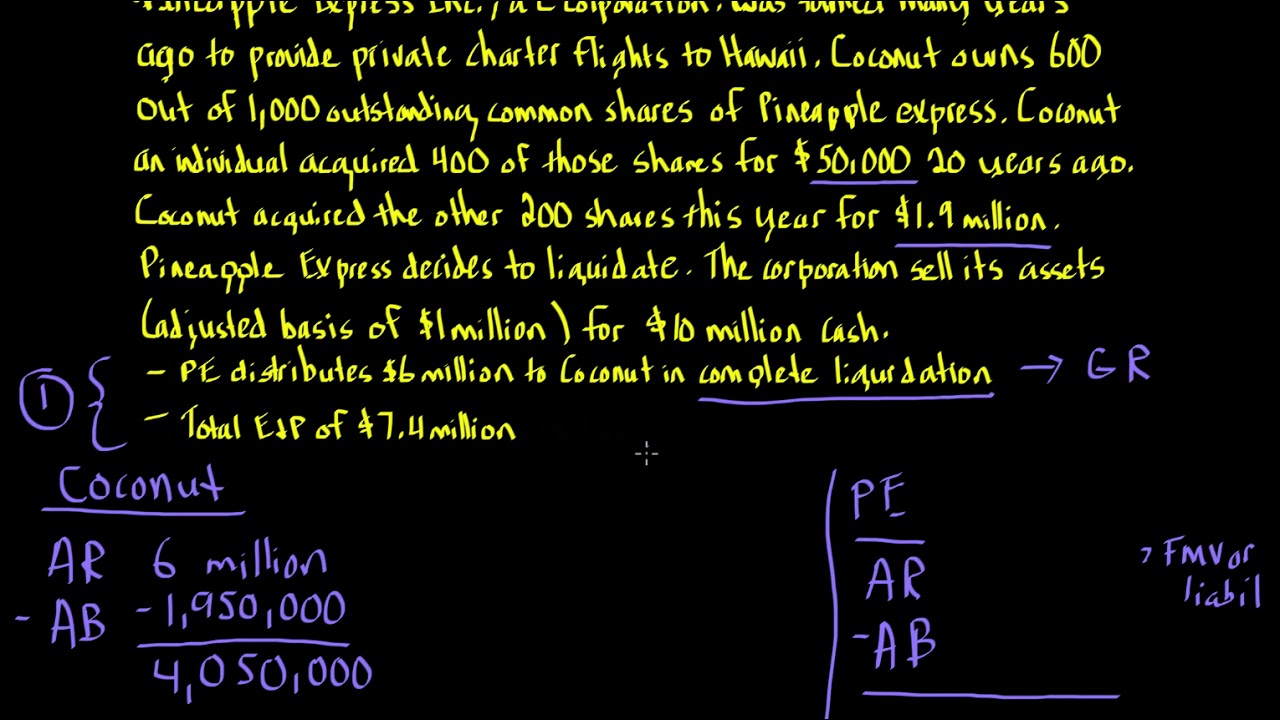 Pineapple Express Inc., a C corporation, was formed many years
ago to provide private charter flights to Hawaii. Coconut owns 600
out of 1,000 outstanding common shares of Pineapple express. Coconut
an individual acquired 400 of those shares for $50,000 20 years ago.
Coconut acquired the other 200 shares this year for $1.9 million.
Pineapple Express decides to liquidate. The corporation sell its assets
(adjusted basis of $1million) for $10 million cash.
- PE distributes $6 million to Coconut in complete liquidation → GR
① - Total E&P of $7.4 million
Coconut
AR 6 million
- AB -1,950,000
4,050,000
PE
AR
-AB
> FMV or
liabil